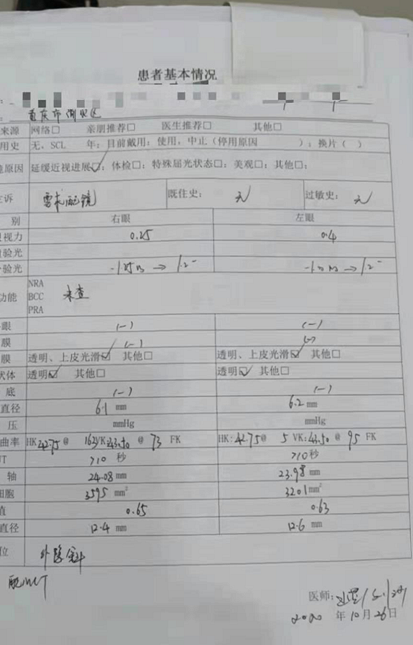 患者基本情况
重庆市
来源 网络□ 亲朋推荐□ 医生推荐□ 其他□
用史 无, SCL 年: 目前戴用: 使用, 中止 (停用原因 ): 换片 ( )
原因 延缓近视进展☑: 体检□; 特殊屈光状态□; 美观□; 其他□:
诉 既住史: 无 过敏史: 无
别 右眼 左眼
视力 0.25 0.4
验光
验光
功能 NRA
BCC 未查
PRA
眼 (-) (-)
膜 (-) (-)
膜 透明、上皮光滑☑ 其他□ 透明、上皮光滑☑ 其他□
状体 透明☑ 其他□ 透明☑ 其他□
底 (-) (-)
直径 6.1 mm 6.2 mm
压 mmHg mmHg
曲率 HK: 42.75 @ VK: 43.50 @ 73 FK HK: 42.75 @ 5 VK: 43.50 @ 95 FK
UT >10 秒 >10 秒
轴 24.08 mm 23.98 mm
细胞 3595 mm² 3201 mm²
值 0.65 0.63
直径 12.4 mm 12.6 mm
位
医师:
2020 年 10 月 26 日